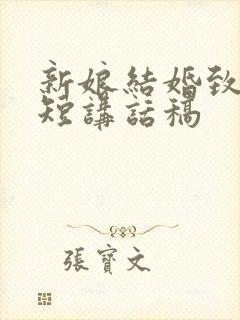 新娘結婚致
短講話稿
張寶文